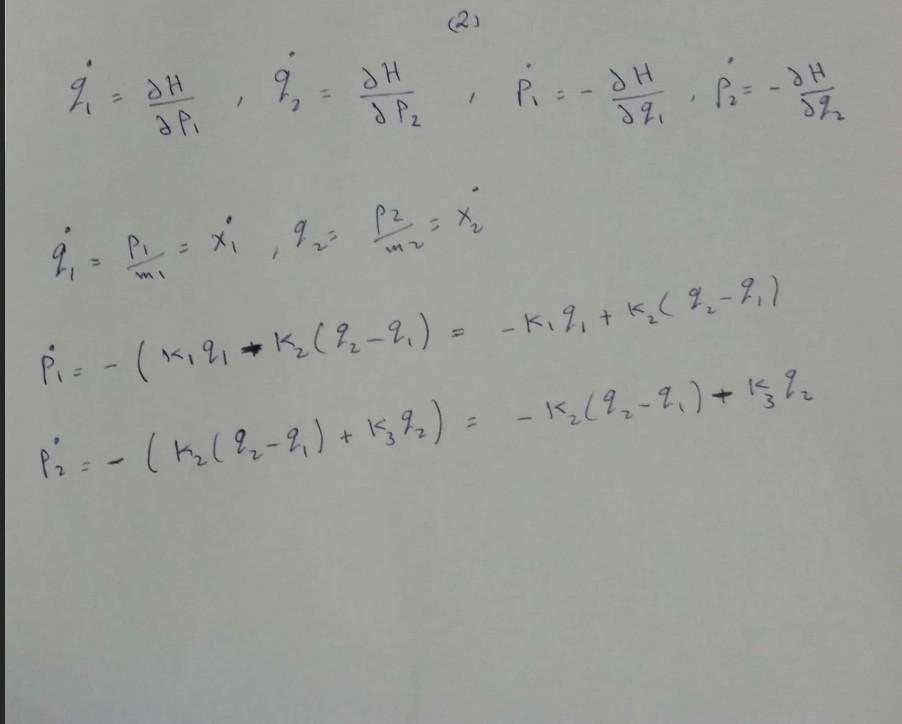 (2)
q̇₁ = ∂H/∂P₁ , q̇₂ = ∂H/∂P₂ , Ṗ₁ = - ∂H/∂q₁ , Ṗ₂ = - ∂H/∂q₂
q̇₁ = P₁/m₁ = ẋ₁ , q₂ = P₂/m₂ = ẋ₂
Ṗ₁ = - ( K₁q₁ - K₂(q₂-q₁) = -K₁q₁ + K₂(q₂-q₁)
Ṗ₂ = - ( K₂(q₂-q₁) + K₃q₂) = - K₂(q₂-q₁) - K₃q₂